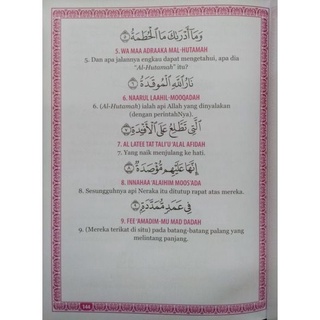 وَمَا أَدْرَىٰكَ مَا الْحُطَمَةُ ٥
5. WA MAA ADRAAKA MAL-HUTAMAH
5. Dan apa jalannya engkau dapat mengetahui, apa dia
"Al-Hutamah" itu?
نَارُ اللَّهِ الْمُوقَدَةُ ٦
6. NAARUL LAAHIL-MOOQADAH
6. (Al-Hutamah) ialah api Allah yang dinyalakan
(dengan perintahNya).
الَّتِي تَطَّلِعُ عَلَى الْأَفْئِدَةِ ٧
7. AL LATEE TAT TALI'U 'ALAL AFIDAH
7. Yang naik menjulang ke hati.
إِنَّهَا عَلَيْهِم مُّؤْصَدَةٌ ٨
8. INNAHAA 'ALAIHIM MOOS'ADA
8. Sesungguhnya api Neraka itu ditutup rapat atas mereka.
فِي عَمَدٍ مُّمَدَّدَةٍ ٩
9. FEE 'AMADIM-MU MAD DADAH
9. (Mereka terikat di situ) pada batang-batang palang yang
melintang panjang.